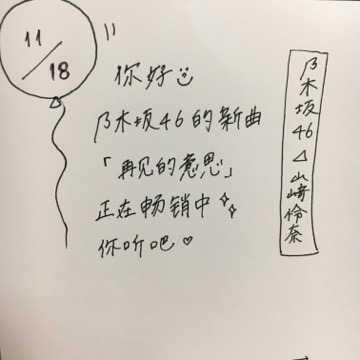 11/18
你好
乃木坂46的新曲
「再见的意思」
正在畅销中
你听吧
乃木坂46 山崎怜奈